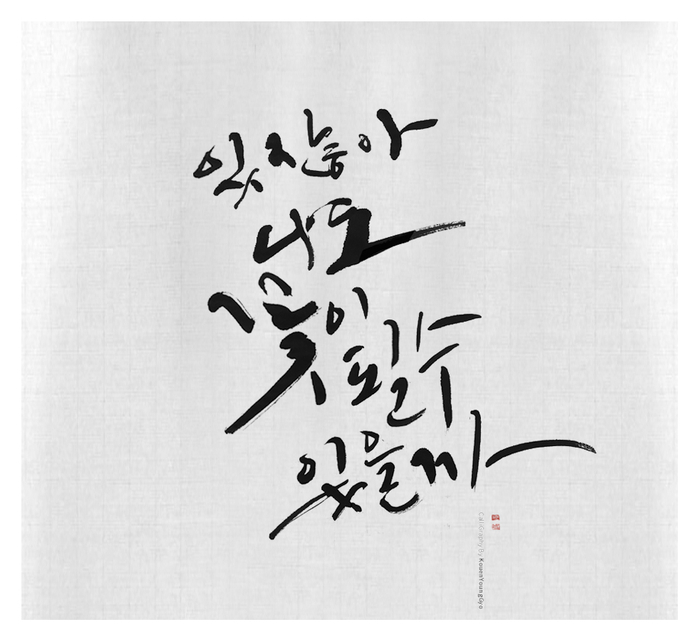 있잖아
나도
꽃이 될 수
있을까
Calligraphy By. KwonnYoungGyo